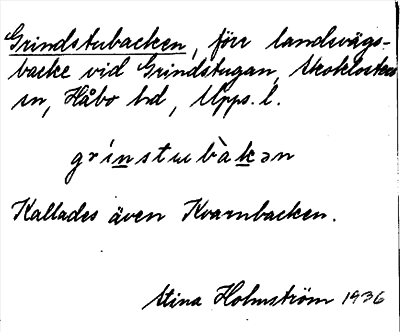 Grindstubacken, förr landsvägs-
backe vid Grindstugan, Skokloster
sn, Håbo hd, Upps. l.
grinstɯbàkən
Kallades även Kvarnbacken.
Stina Holmström 1936